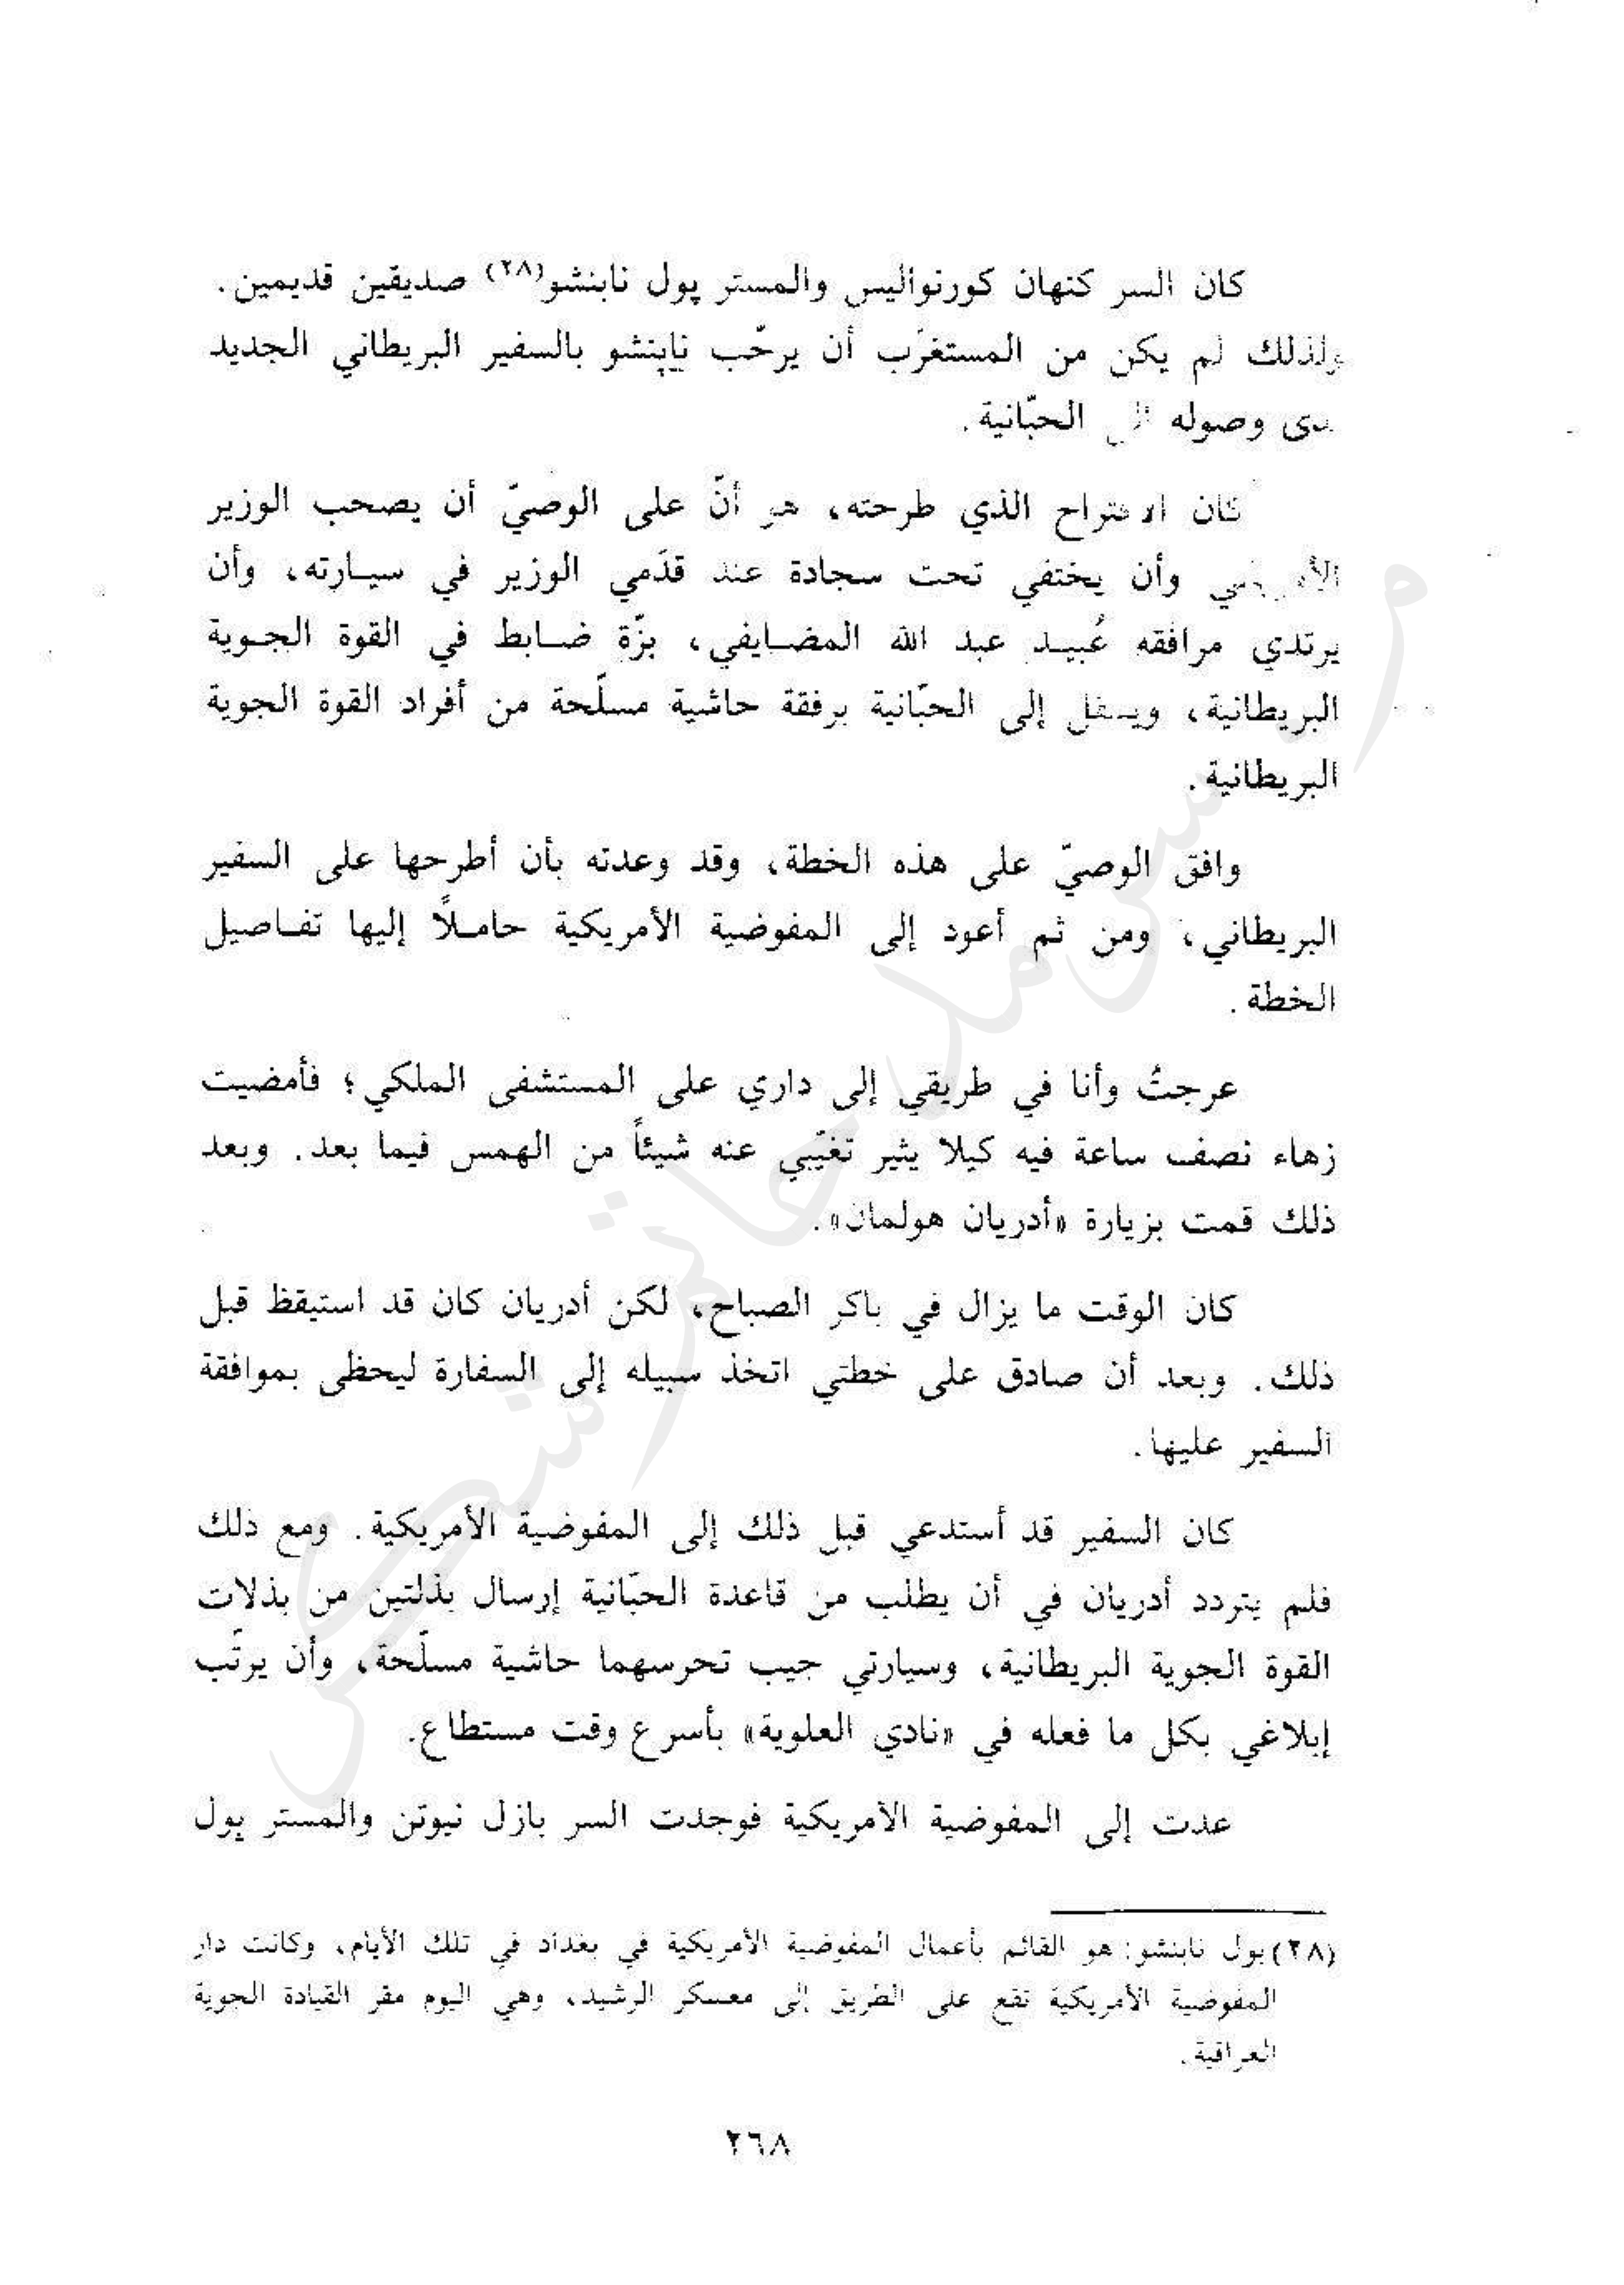 كان السر كنهان كورنواليس والمستر پول نابنشو(٢٨) صديقين قديمين.
ولذلك لم يكن من المستغرَب أن يرحّب نابنشو بالسفير البريطاني الجديد
لدى وصوله الى الحبّانية.
كان الاقتراح الذي طرحته، هو أنّ على الوصيّ أن يصحب الوزير
الأمريكي وأن يختفي تحت سجادة عند قدَمي الوزير في سيارته، وأن
يرتدي مرافقه عُبيد عبد الله المضايفي، بزّة ضابط في القوة الجوية
البريطانية، وينقل إلى الحبّانية برفقة حاشية مسلّحة من أفراد القوة الجوية
البريطانية.
وافق الوصيّ على هذه الخطة، وقد وعدته بأن أطرحها على السفير
البريطاني، ومن ثم أعود إلى المفوضية الأمريكية حاملاً إليها تفاصيل
الخطة.
عرجتُ وأنا في طريقي إلى داري على المستشفى الملكي؛ فأمضيت
زهاء نصف ساعة فيه كيلا يثير تغيّبي عنه شيئاً من الهمس فيما بعد. وبعد
ذلك قمت بزيارة «أدريان هولمان».
كان الوقت ما يزال في باكر الصباح، لكن أدريان كان قد استيقظ قبل
ذلك. وبعد أن صادق على خطتي اتخذ سبيله إلى السفارة ليحظى بموافقة
السفير عليها.
كان السفير قد أستدعي قبل ذلك إلى المفوضية الأمريكية. ومع ذلك
فلم يتردد أدريان في أن يطلب من قاعدة الحبّانية إرسال بذلتين من بذلات
القوة الجوية البريطانية، وسيارتي جيب تحرسهما حاشية مسلّحة، وأن يرتّب
إبلاغي بكل ما فعله في «نادي العلوية» بأسرع وقت مستطاع.
عدت إلى المفوضية الأمريكية فوجدت السر بازل نيوتن والمستر پول
(٢٨) بول نابنشو: هو القائم بأعمال المفوضية الأمريكية في بغداد في تلك الأيام، وكانت دار
المفوضية الأمريكية تقع على الطريق إلى معسكر الرشيد، وهي اليوم مقر القيادة الجوية
العراقية.
٢٦٨